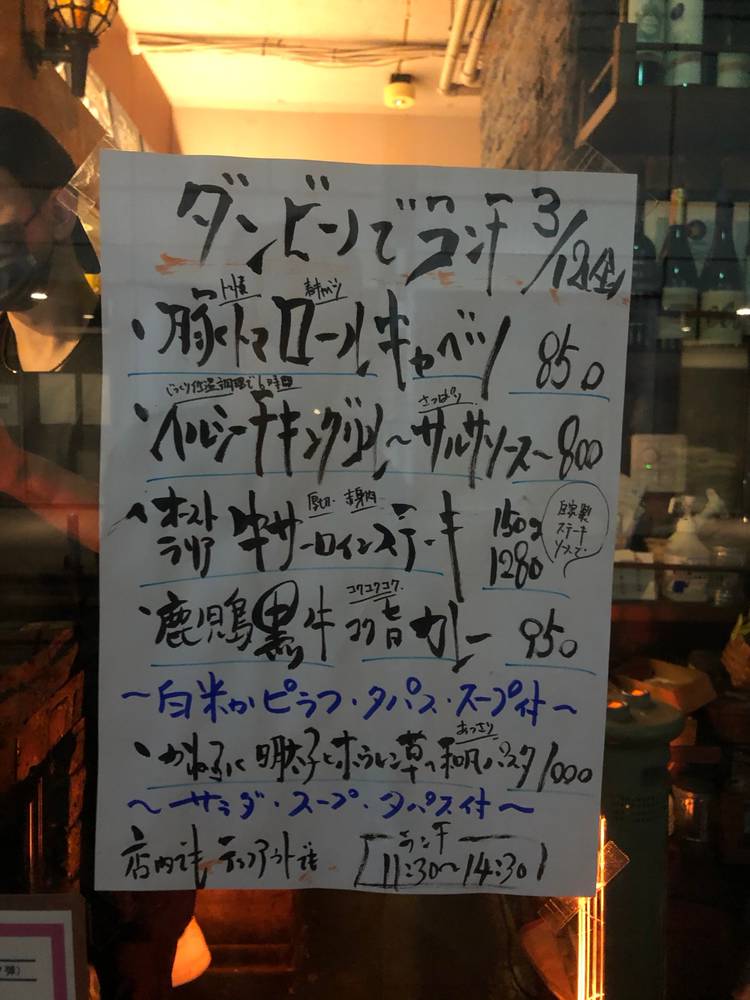 ダンビーノでランチ 3/12(金)
トロ豚 春キャベツ
・豚トマロールキャベツ 850
じっくり低温調理で6時間 さっぱり
・イルシーチキングリル～サルサソース～ 800
厚切 赤身肉
・オーストラリア 牛サーロインステーキ 150g 1280
自家製ステーキソースで
コクコクコク
・鹿児島黒牛コク旨カレー 950
～白米かピラフ・タパス・スープ付～
あっさり
明太子とホウレン草の和風パスタ 1000
～サラダ・スープ・タパス付～
店内でも テイクアウトでも
ランチ
11:30～14:30